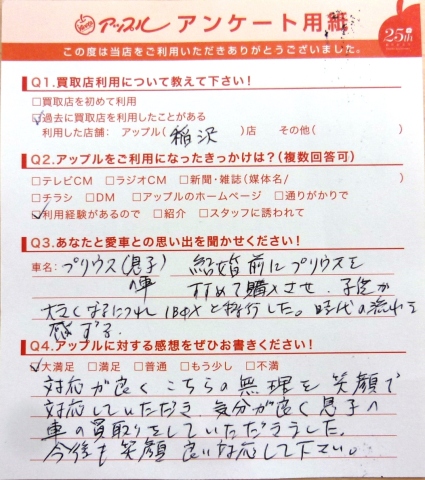 アップル アンケート用紙
25th
この度は当店をご利用いただきありがとうございました。
Q1.買取店利用について教えて下さい!
□買取店を初めて利用
☑過去に買取店を利用したことがある
利用した店舗: アップル(稲沢)店 その他( )
Q2.アップルをご利用になったきっかけは?(複数回答可)
□テレビCM □ラジオCM □新聞・雑誌(媒体名/ )
□チラシ □DM □アップルのホームページ □通りがかりで
☑利用経験があるので □紹介 □スタッフに誘われて
Q3.あなたと愛車との思い出を聞かせください!
車名: プリウス(息子の車) 結婚前にプリウスを
初めて購入させ、子供が
大きくなるにつれ 1BOXと移行した。時代の流れを
感ずる
Q4.アップルに対する感想をぜひお書きください!
☑大満足 □満足 □普通 □もう少し □不満
対応が良く こちらの無理を笑顔で
対応していただき、気分が良く息子の
車の買取りをしていただきました。
今後も笑顔良い対応して下さい。